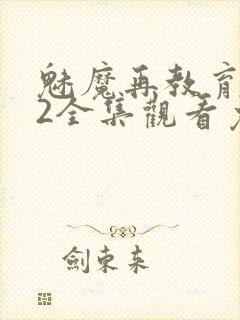 魅魔再教育
2全集觀看
劍束来